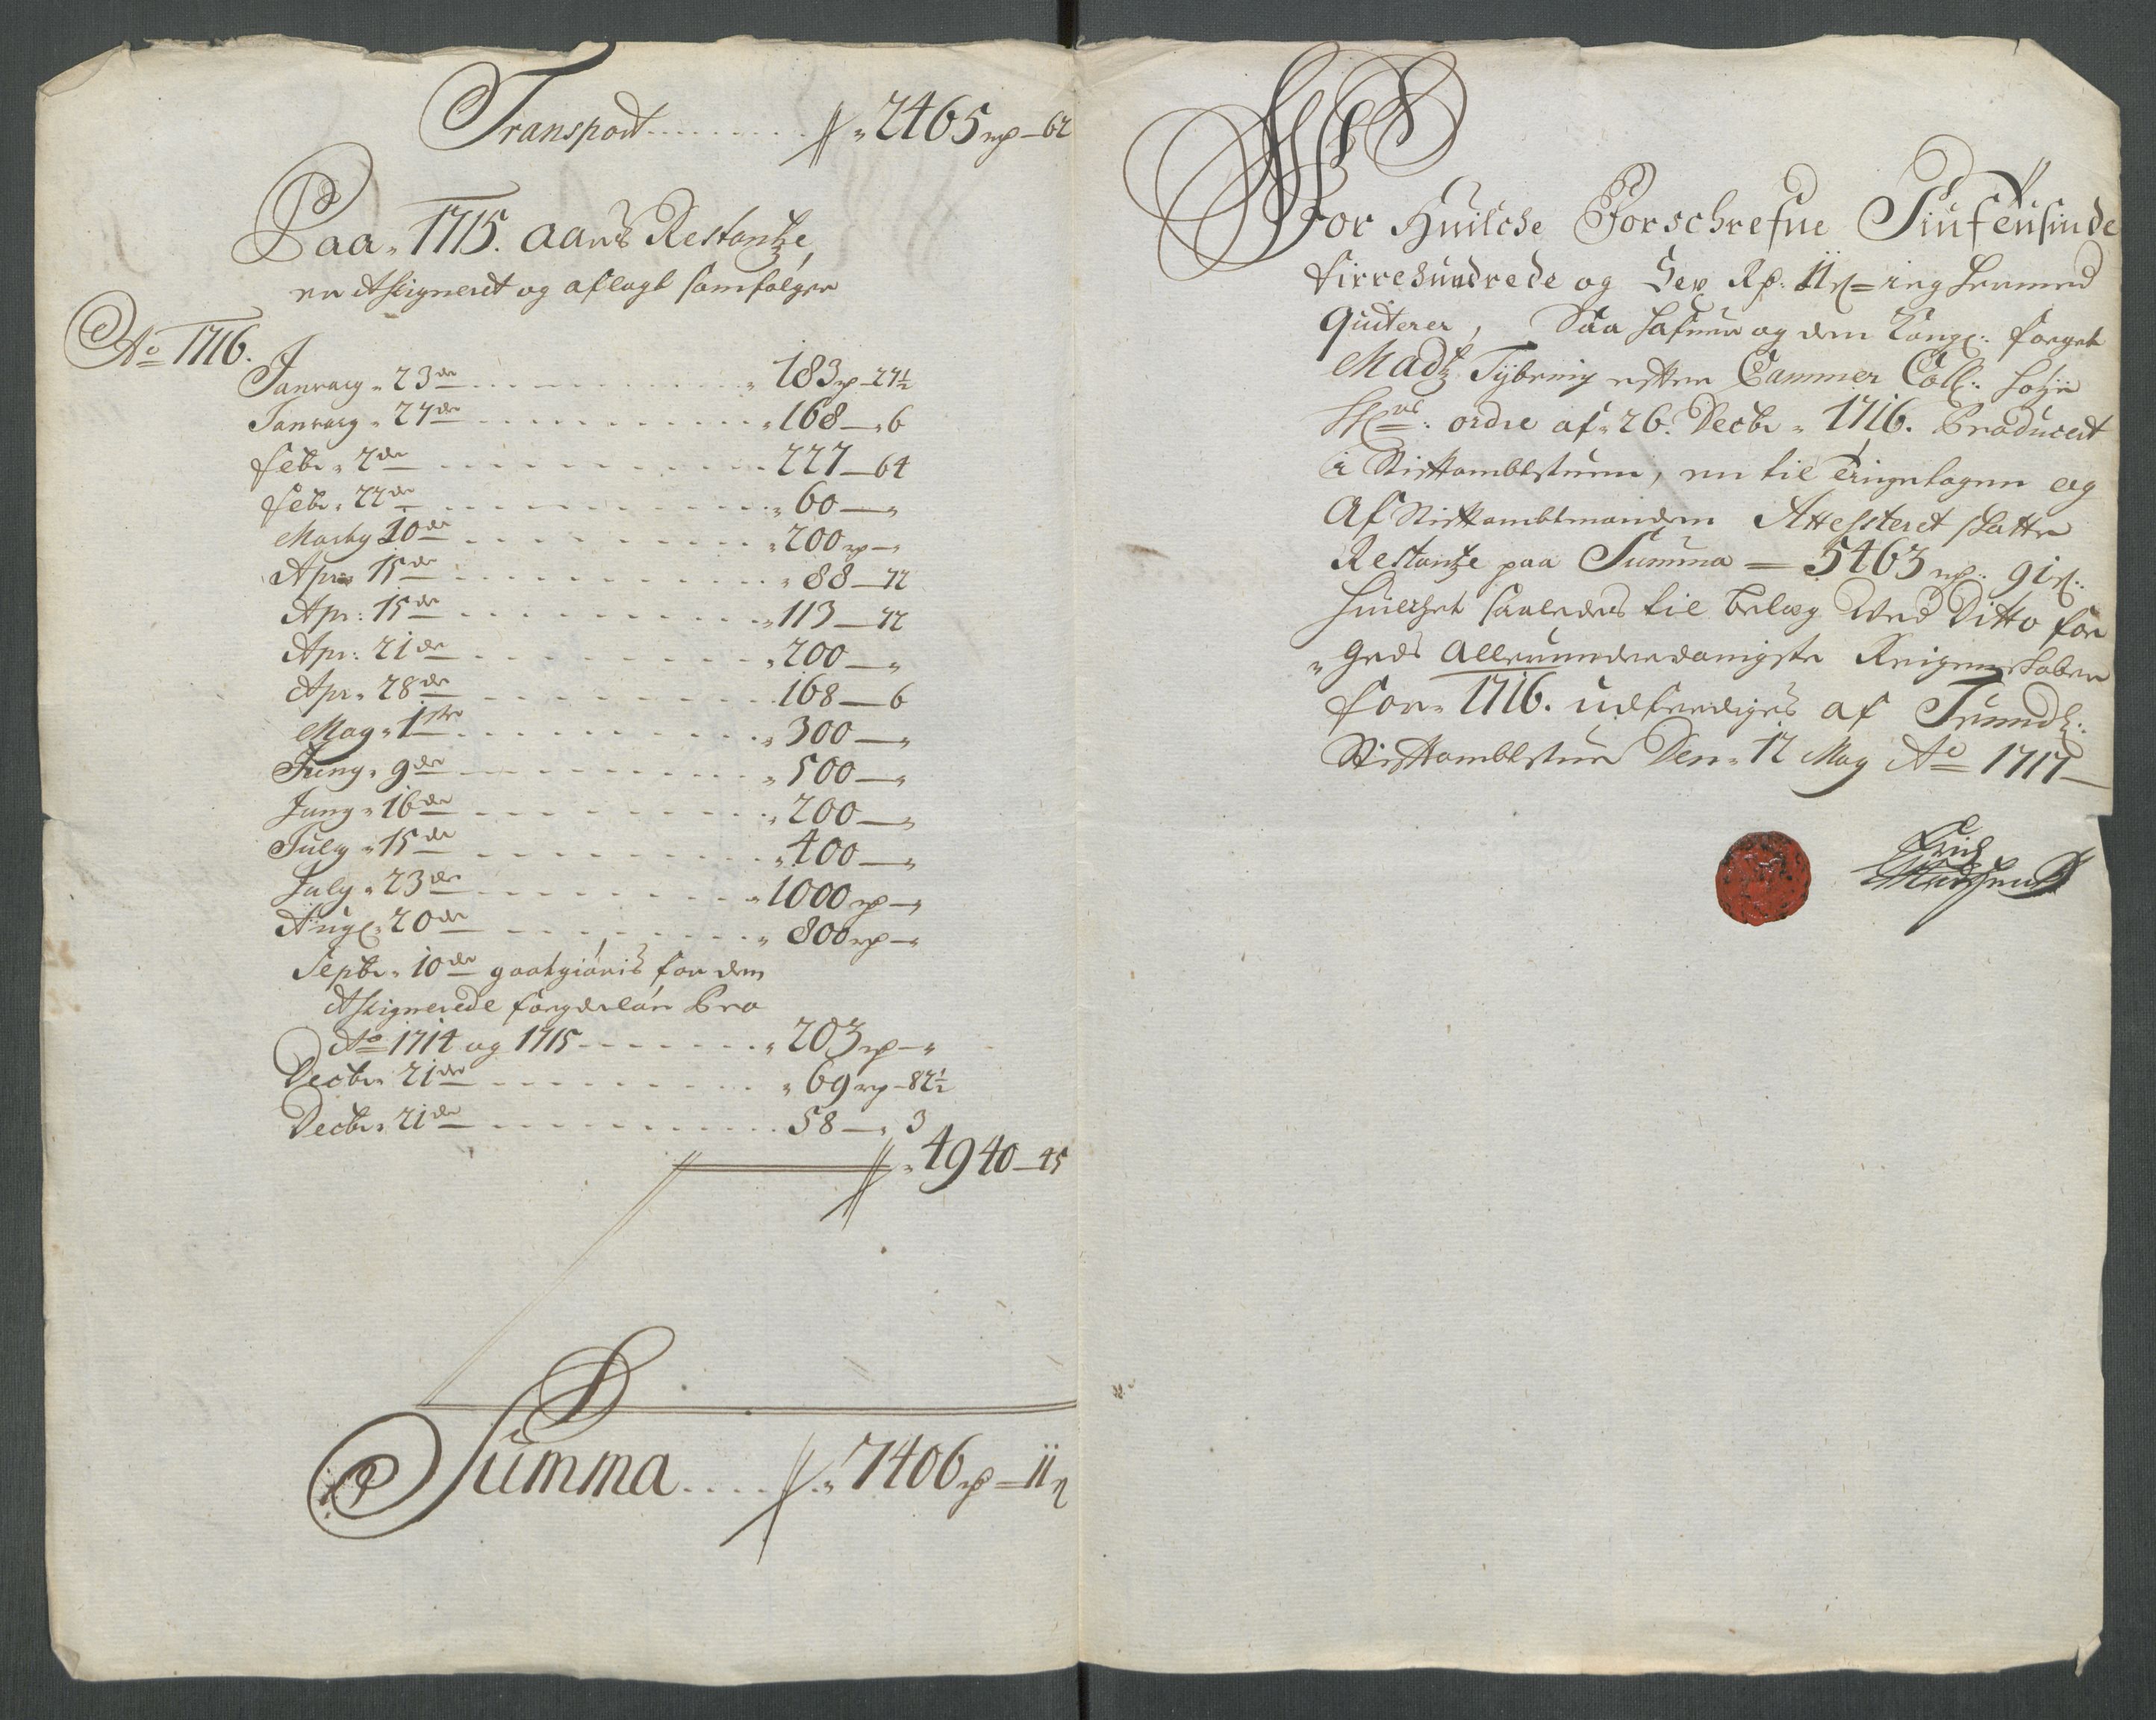 Transport ........ 2465 rp – 62
Paa 1715. aars Restantze,
er Assigneret og aflagt som følger
Ao 1716.
January 23de ........ 183 rp – 27½
January 27de ........ 168 – 6
Febr. 2de ........ 227 – 64
Febr. 22de ........ 60 –
Marty 10de ........ 200 rp –
Apr. 15de ........ 88 – 72
Apr: 15de ........ 113 – 72
Apr: 21de ........ 200 –
Apr. 28de ........ 168 – 6
May 1ste ........ 300 –
Juny 9de ........ 500 –
Juny 16de ........ 200 –
July 15de ........ 400 –
July 23de ........ 1000 rp –
Aug. 20de ........ 800 rp –
Septbr. 10de godtgiøris for dem
Assignerede Pro
Ao 1714 og 1715 ........ 203 rp –
Decbr. 21de ........ 69 rp – 82½
Decbr. 21de ........ 58 – 3
4940 – 45
Summa .... 7406 rp – 11
For Huilche Forschrefne Siufensinde
firrehundrede og Sex Rp: 11 s = ieg hermed
Quiterer, Saa hafuer og den Kongl: foget
Madtz Tybring efter Cammer Coll: høje
Hr. ordre af 26. Decbr 1716. Produceret
i Stiftambtstuen, en til tagen og
Af Stiftambtmanden Attesteret skatte
Restantze paa Summa = 5463 rp: 91 s:
huilchet saaledes til belæg Ved Ditto fo
geds allerunderdanigste Reigenskaber
for 1716. udferdiges af Trundh:
Stiftambtstue Den 12 May Ao 1717
Erich
Madssen